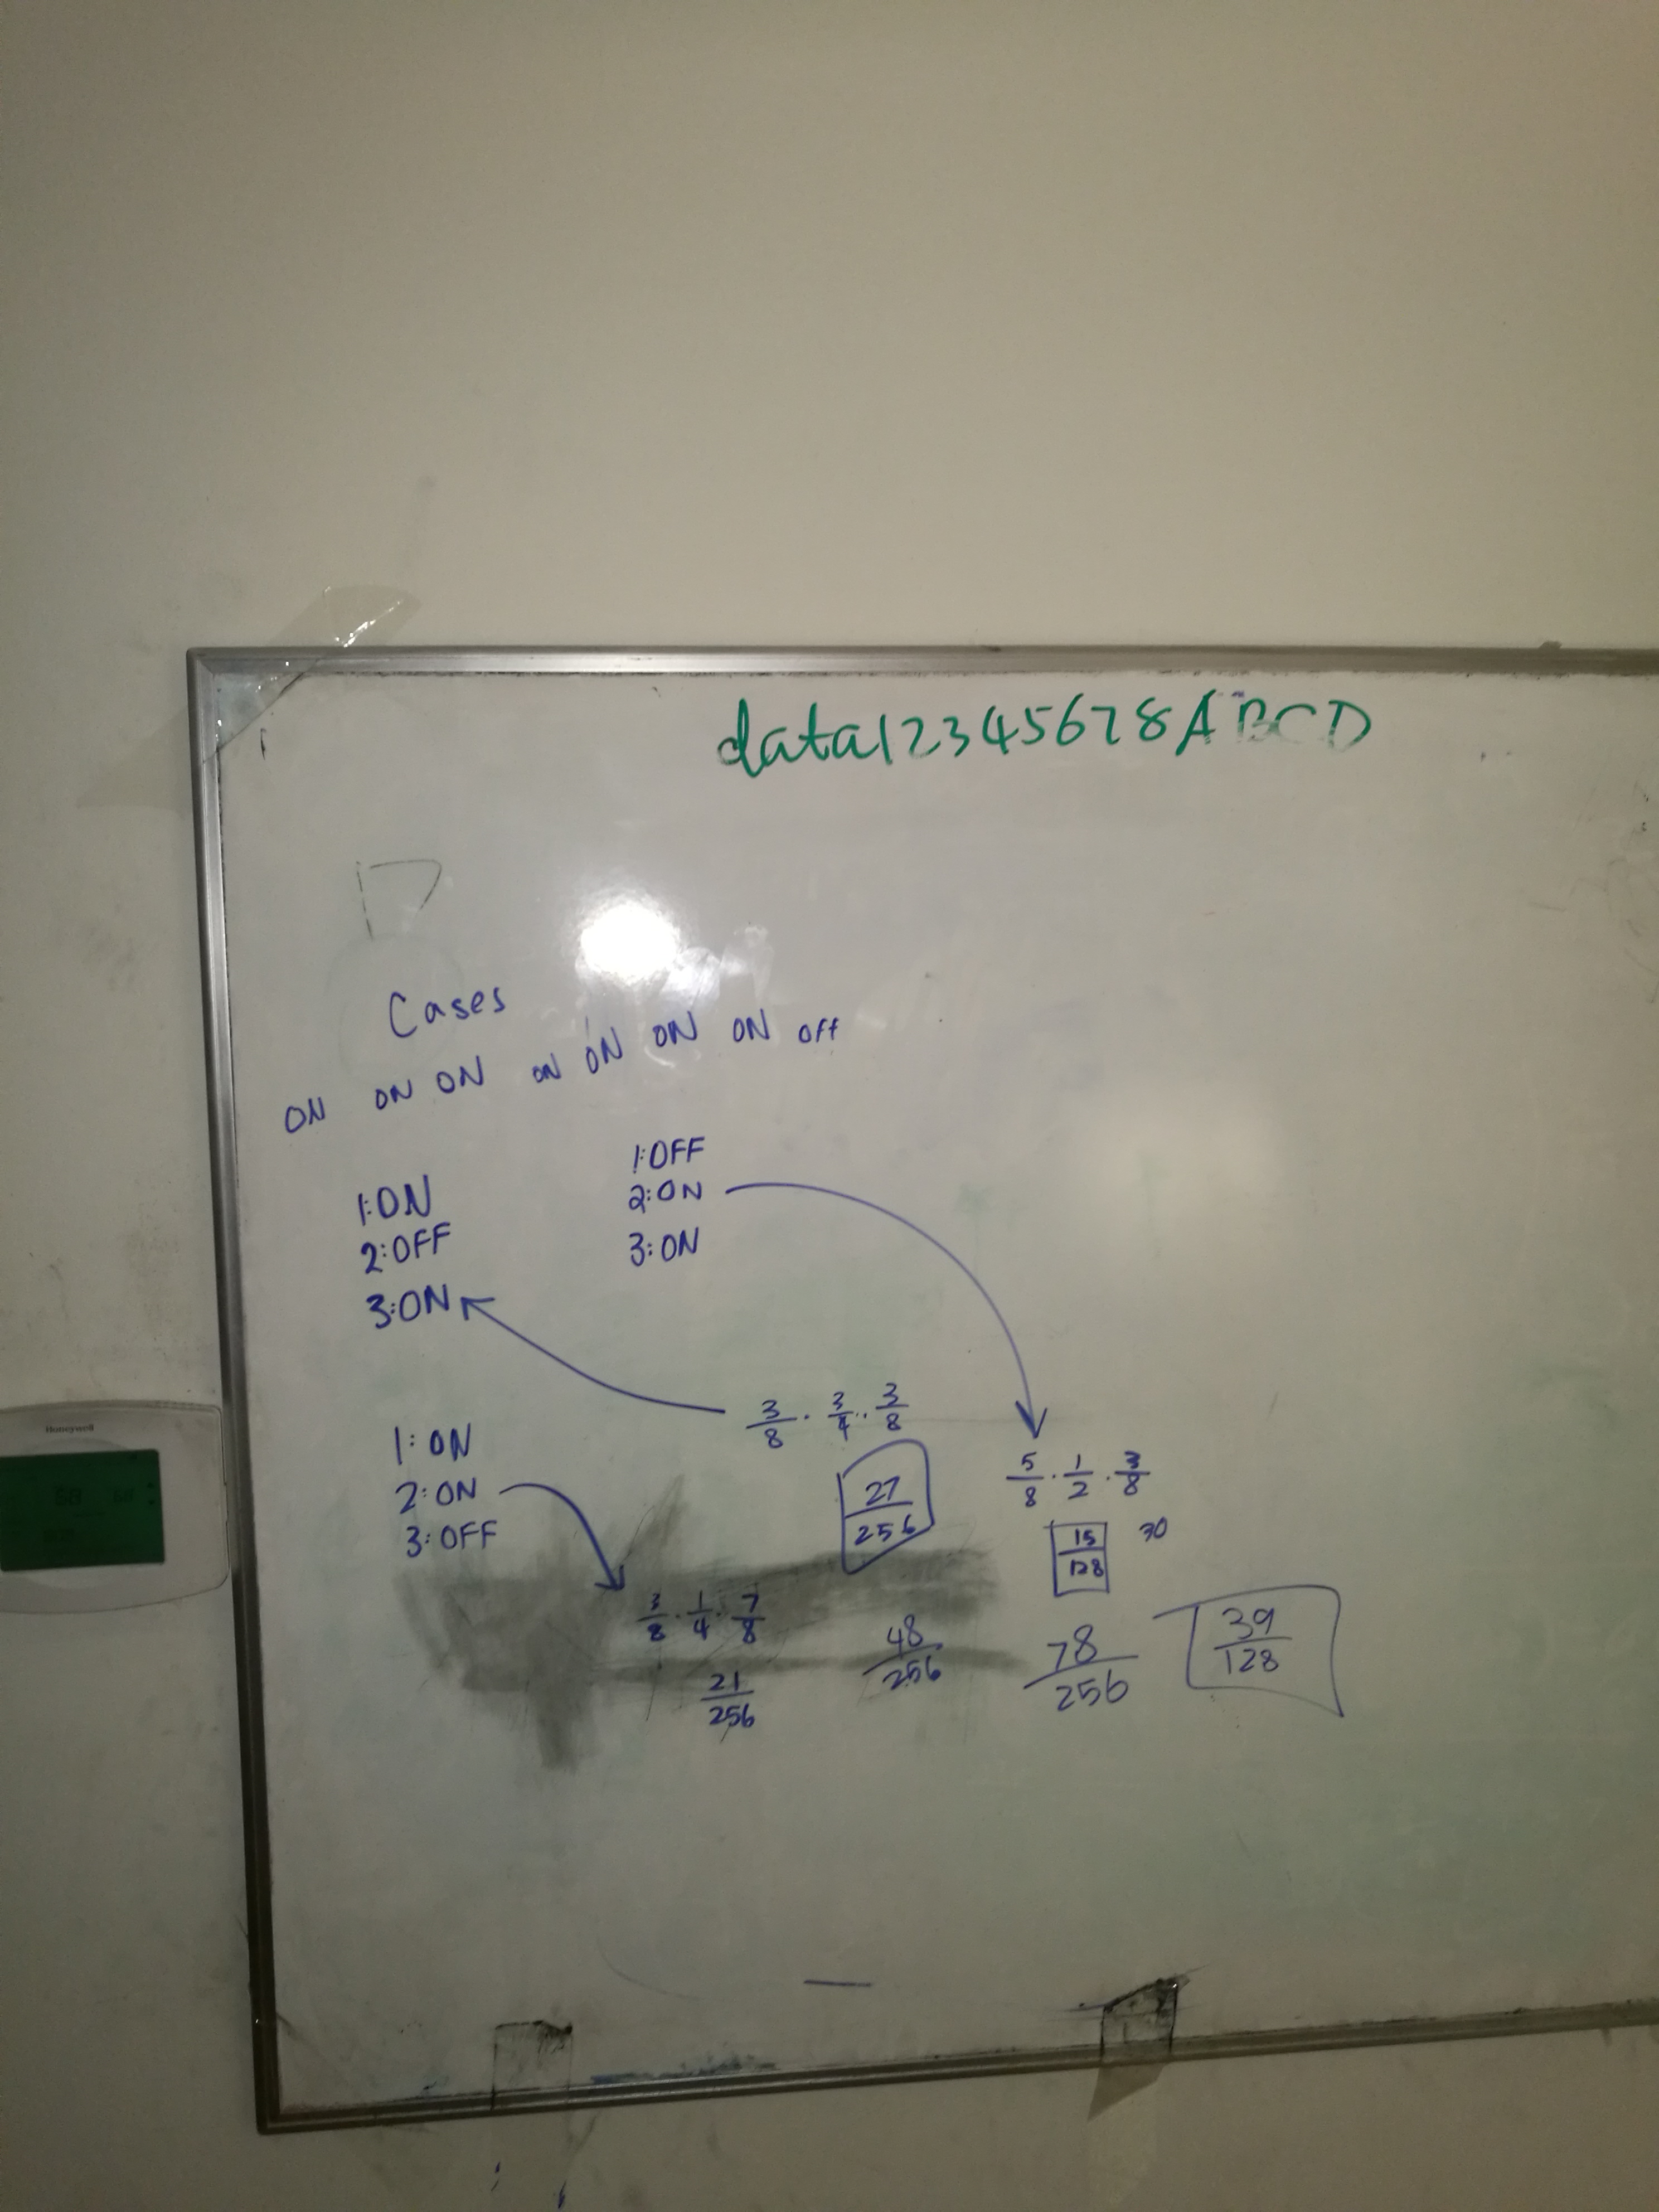 data12345678ABCD
Cases
ON ON ON ON ON ON ON Off
1:ON
2:OFF
3:ON
1:OFF
2:ON
3:ON
1:ON
2:ON
3:OFF
3/8 · 3/4 · 3/8
27/256
5/8 · 1/2 · 3/8
15/128 30
3/8 · 1/4 · 7/8
21/256
48/256
78/256
39/128
Honeywell